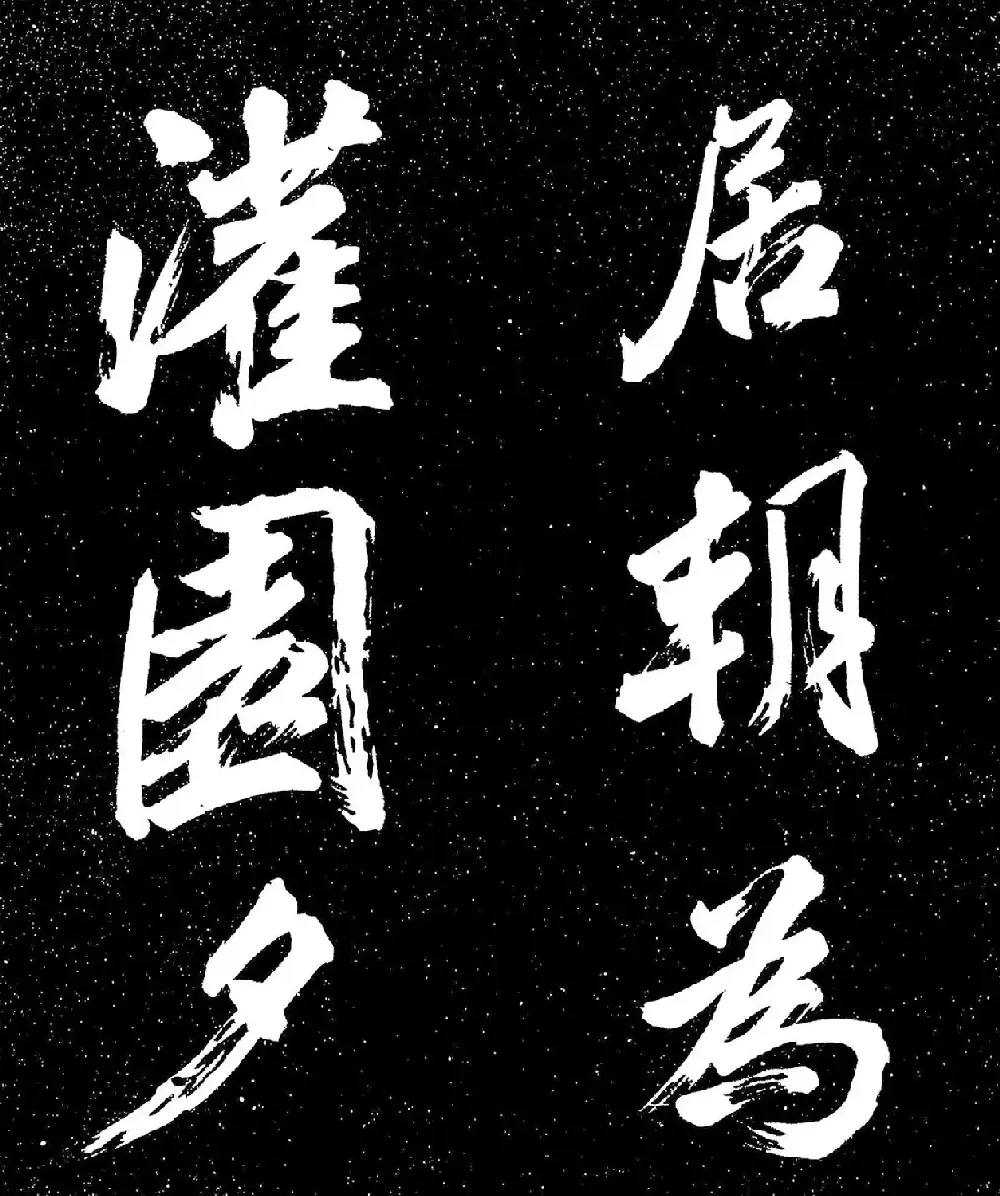 居朝為
灌園夕